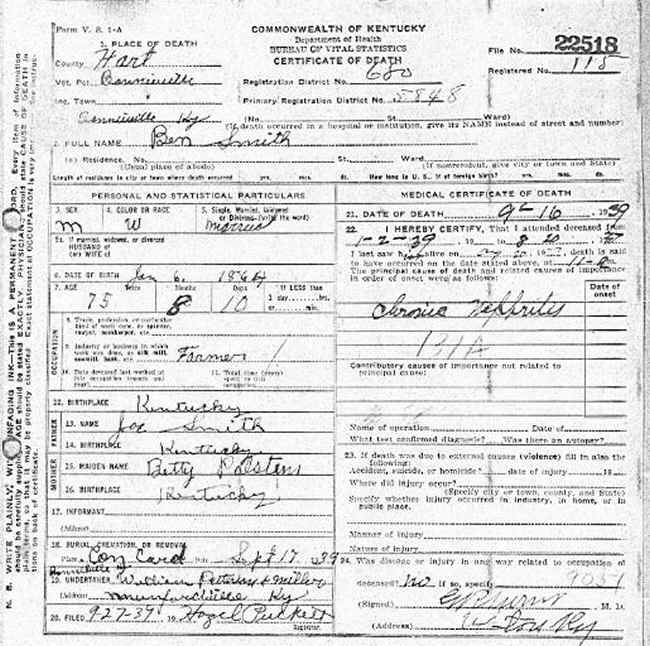 Form V. S. 1-A
COMMONWEALTH OF KENTUCKY
Department of Health
BUREAU OF VITAL STATISTICS
CERTIFICATE OF DEATH
File No. 22518
Registered No. 115
1. PLACE OF DEATH
County Hart
Vot. Pct. Bonnieville
Inc. Town
Bonnieville Ky
Registration District No. 680
Primary Registration District No. 5848
(No. St. Ward)
(If death occurred in a hospital or institution, give its NAME instead of street and number)
2. FULL NAME Ben Smith
(a) Residence. No. St. Ward
(Usual place of abode) (If nonresident, give city or town and State)
Length of residence in city or town where death occurred yrs. mos. ds. How long in U. S., if of foreign birth? yrs. mos. ds.
PERSONAL AND STATISTICAL PARTICULARS
3. SEX m
4. COLOR OR RACE W
5. Single, Married, Widowed or Divorced (write the word) married
5a. If married, widowed, or divorced
HUSBAND of
(or) WIFE of
6. DATE OF BIRTH Jan 6,
7. AGE 75 Years 8 Months 10 Days If LESS than
1 day, hrs.
or min.
OCCUPATION
8. Trade, profession, or particular
kind of work done, as spinner,
sawyer, bookkeeper, etc.
9. Industry or business in which
work was done, as silk mill,
sawmill, bank, etc. Farmer
10. Date deceased last worked at
this occupation (month and
year)
11. Total time (years)
spent in this
occupation
12. BIRTHPLACE Kentucky
FATHER
13. NAME Joe Smith
14. BIRTHPLACE Kentucky
MOTHER
15. MAIDEN NAME Betty
16. BIRTHPLACE Kentucky
17. INFORMANT
(Address)
18. BURIAL, CREMATION, OR REMOVAL
Place Date Sept 17 1939
Bonnieville
19. UNDERTAKER William
(Address) Munfordville Ky
20. FILED 9-27-39 19 Hazel Puckett
Registrar
MEDICAL CERTIFICATE OF DEATH
21. DATE OF DEATH 9-16, 1939
22. I HEREBY CERTIFY, That I attended deceased from
1-2-39, 19 to 8 20, 19
I last saw h alive on 19 death is said
to have occurred on the date stated above, at m.
The principal cause of death and related causes of importance
in order of onset were as follows:
Date of
onset
Chronic Neffritis
131A
Contributory causes of importance not related to
principal cause:
Name of operation Date of
What test confirmed diagnosis? Was there an autopsy?
23. If death was due to external causes (violence) fill in also the
following:
Accident, suicide, or homicide? date of injury 19
Where did injury occur?
(Specify city or town, county, and State)
Specify whether injury occurred in industry, in home, or in
public place.
Manner of injury
Nature of injury
24. Was disease or injury in any way related to occupation of
deceased? no If so, specify
(Signed) M. D.
(Address)
N. B. WRITE PLAINLY, WITH UNFADING INK—THIS IS A PERMANENT RECORD. Every item of information
should be carefully supplied. AGE should be stated EXACTLY. PHYSICIANS should state CAUSE OF DEATH in
plain terms, so that it may be properly classified. Exact statement of OCCUPATION is very important. See instruc-
tions on back of certificate.